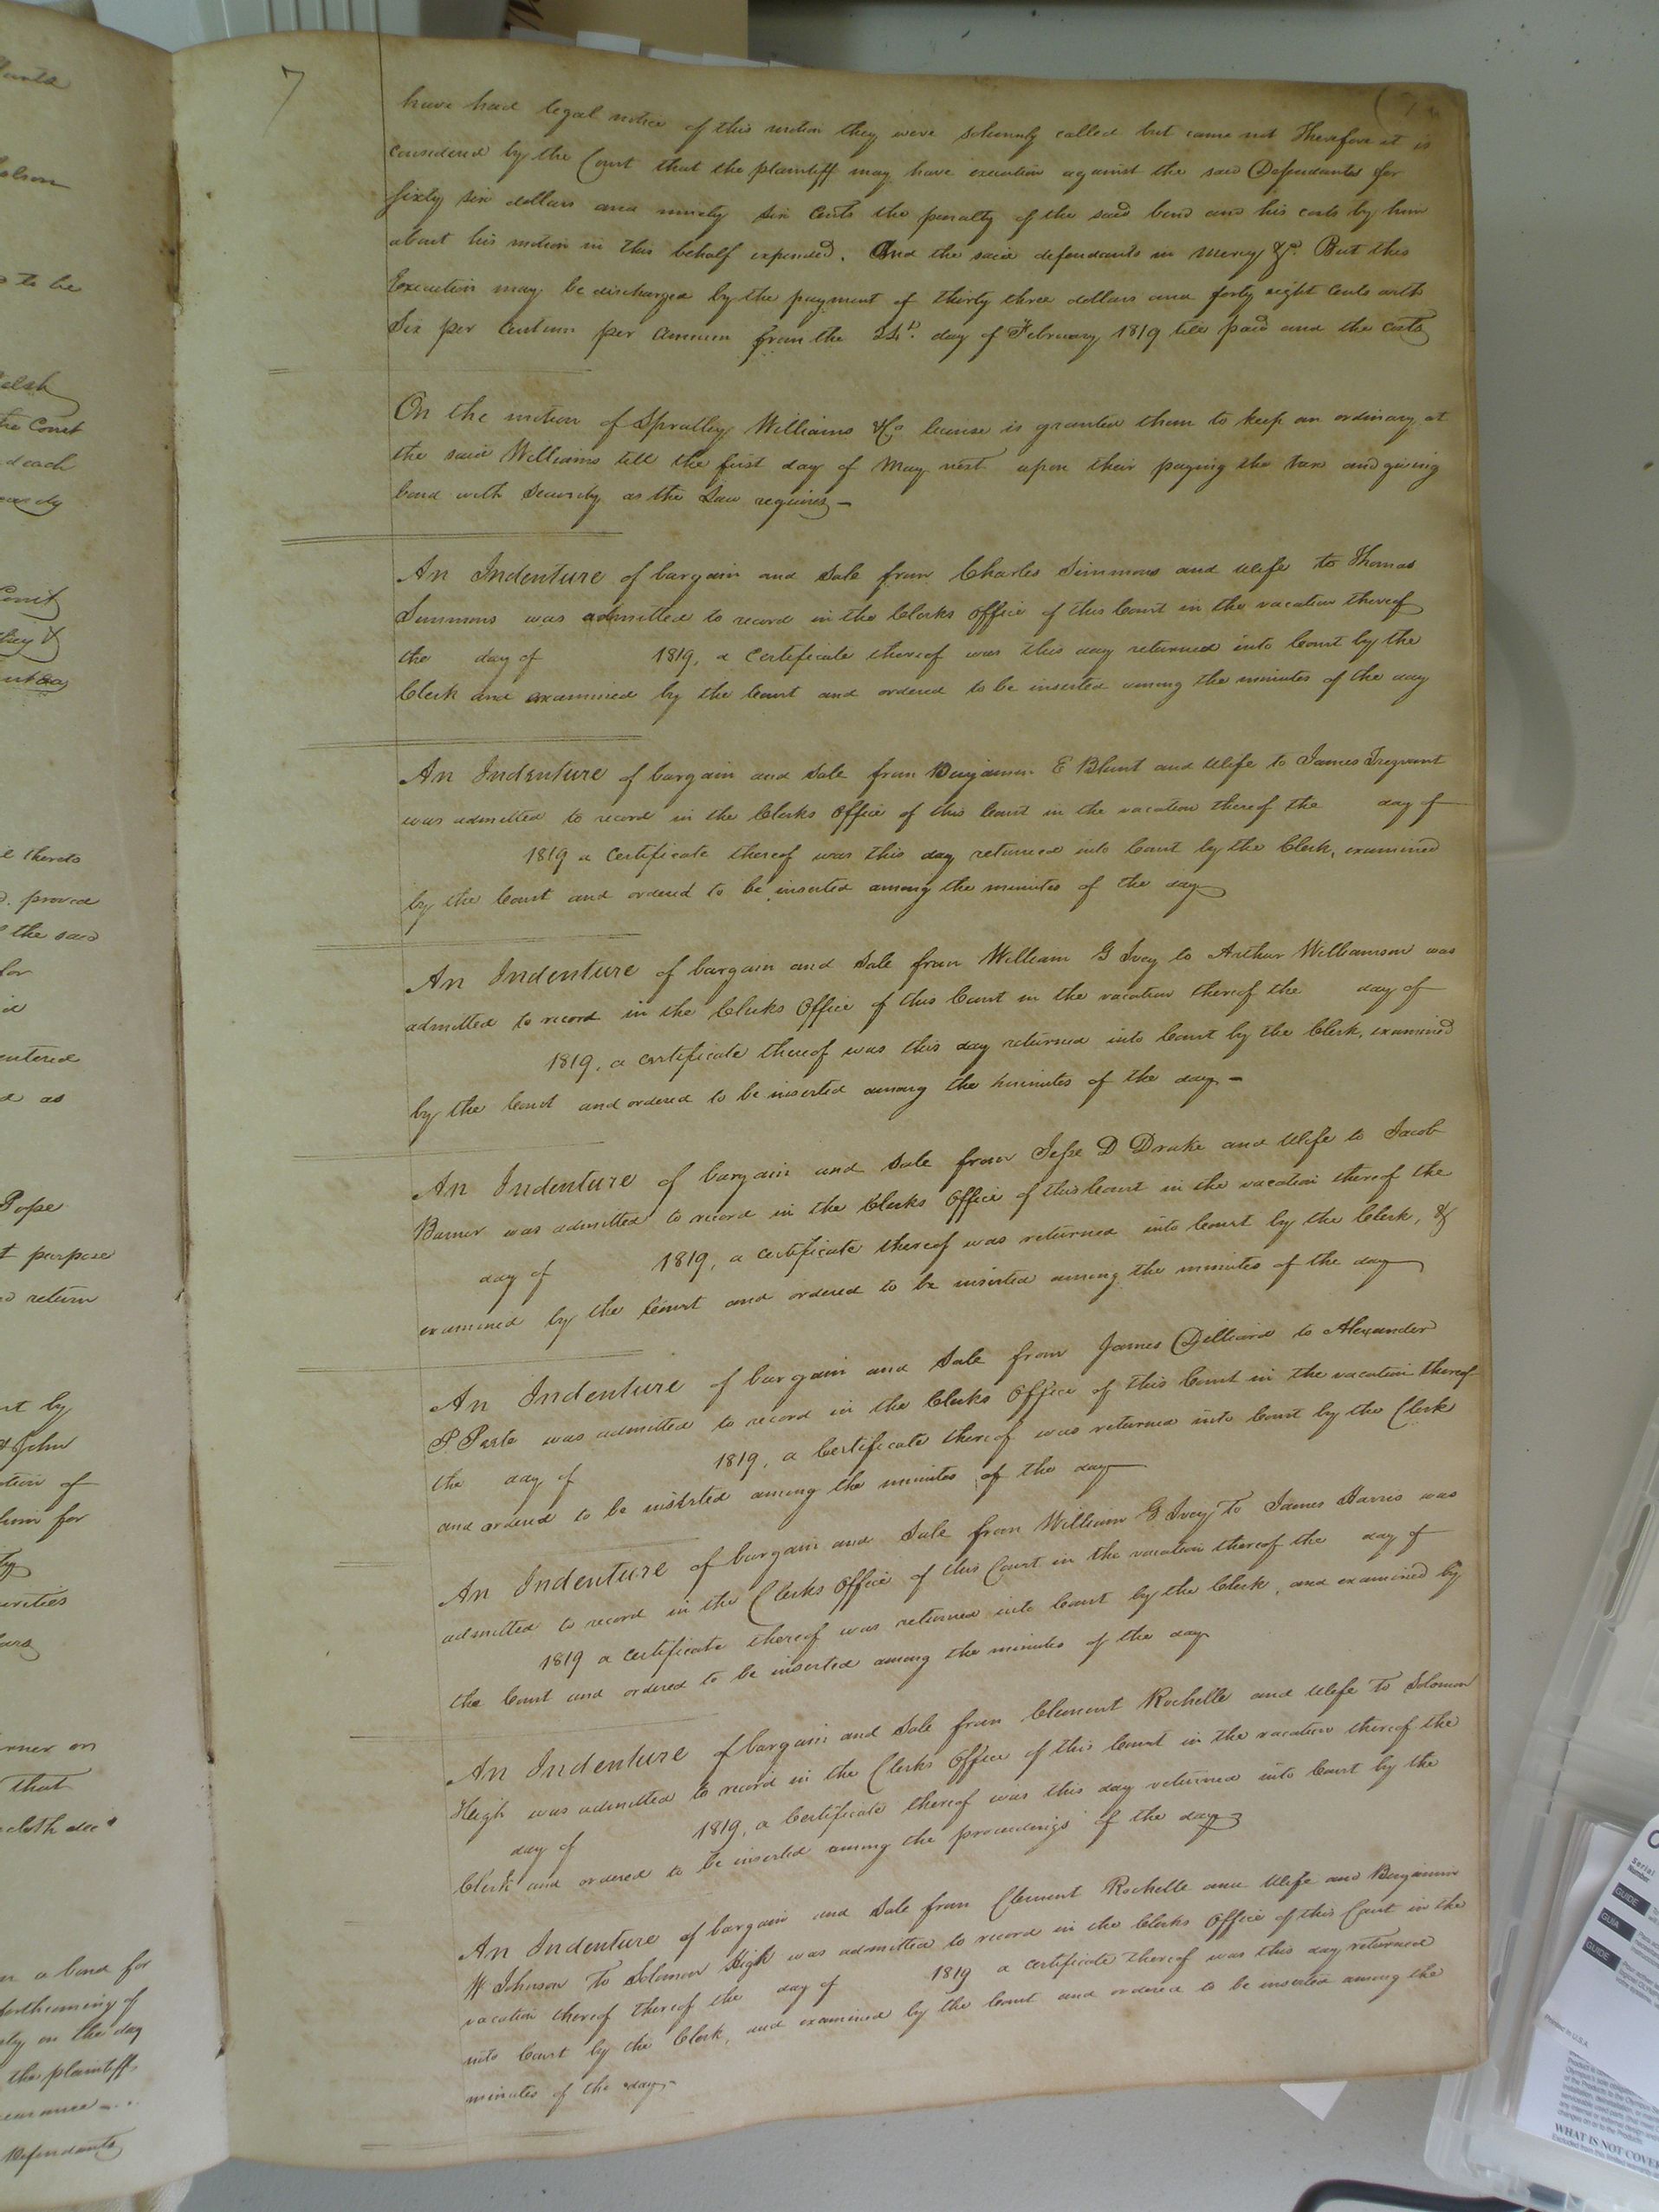 7
have had legal notice of this motion they were solemnly called but came not Therefore it is
considered by the Court that the plaintiff may have execution against the said Defendants for
sixty six dollars and ninety six Cents the penalty of the said bond and his costs by him
about his motion in this behalf expended. And the said defendants in mercy &c. But this
Execution may be discharged by the payment of thirty three dollars and forty eight Cents with
Six per Centum per Annum from the 24th. day of February 1819 till paid and the Costs
On the motion of Spratley Williams & Co license is granted them to keep an ordinary at
the said Williams till the first day of May next upon their paying the tax and giving
bond with security as the Law requires -
An Indenture of bargain and Sale from Charles Simmons and Wife to Thomas
Simmons was admitted to record in the Clerks Office of this Court in the vacation thereof
the day of 1819, a Certificate thereof was this day returned into Court by the
Clerk and examined by the Court and ordered to be inserted among the minutes of the day
An Indenture of bargain and Sale from Benjamin E Blunt and Wife to James Trezvant
was admitted to record in the Clerks Office of this Court in the vacation thereof the day of
1819 a Certificate thereof was this day returned into Court by the Clerk, examined
by the Court and ordered to be inserted among the minutes of the day
An Indenture of bargain and Sale from William G Ivey to Arthur Williamson was
admitted to record in the Clerks Office of this Court in the vacation thereof the day of
1819, a certificate thereof was this day returned into Court by the Clerk, examined
by the Court and ordered to be inserted among the minutes of the day -
An Indenture of bargain and Sale from Jesse D Drake and Wife to Jacob
Barner was admitted to record in the Clerks Office of this Court in the vacation thereof the
day of 1819, a certificate thereof was returned into Court by the Clerk, &
examined by the Court and ordered to be inserted among the minutes of the day
An Indenture of bargain and Sale from James Dilliard to Alexander
P. Peete was admitted to record in the Clerks Office of this Court in the vacation thereof
the day of 1819, a Certificate thereof was returned into Court by the Clerk
and ordered to be inserted among the minutes of the day
An Indenture of bargain and Sale from William G Ivey To James Harris was
admitted to record in the Clerks Office of this Court in the vacation thereof the day of
1819 a certificate thereof was returned into Court by the Clerk, and examined by
the Court and ordered to be inserted among the minutes of the day
An Indenture of bargain and Sale from Clement Rochelle and Wife To Solomon
High was admitted to record in the Clerks Office of this Court in the vacation thereof the
day of 1819, a Certificate thereof was this day returned into Court by the
Clerk and ordered to be inserted among the proceedings of the day
An Indenture of bargain and Sale from Clement Rochelle and Wife and Benjamin
W Johnson To Solomon High was admitted to record in the Clerks Office of this Court in the
vacation thereof thereof the day of 1819 a certificate thereof was this day returned
into Court by the Clerk, and examined by the Court and ordered to be inserted among the
minutes of the day -
Pope
purpose
return
by
John
for
that
a bond for
forthcoming of
on the day
the plaintiff
Defendants
GUIDE
GUIA
GUIDE
Printed in U.S.A.
WHAT IS NOT COVE